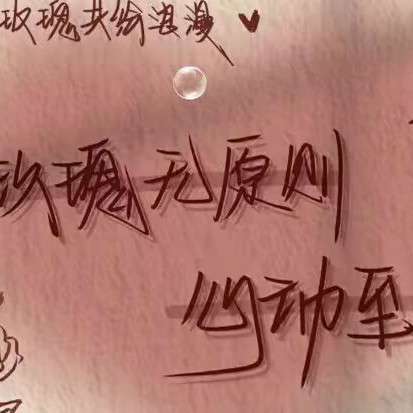 玫瑰共翁浪漫
玫瑰无原则
心动至